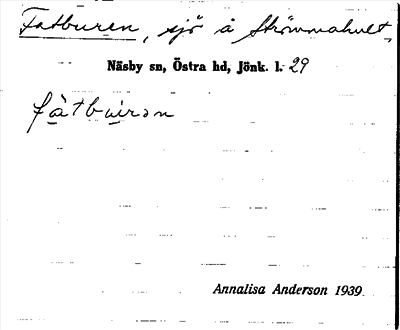 Fatburen, sjö å Strömmahult,
Näsby sn, Östra hd, Jönk. l. 29
fàtbu̠irən
Annalisa Anderson 1939.